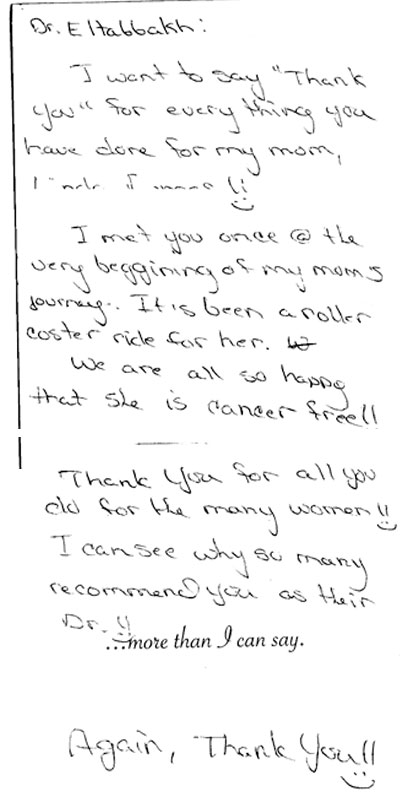 Dr. Eltabbakh:
I want to say "Thank
You" for every thing you
have done for my mom,
!!
I met you once @ the
very beggining of my moms
journey.. It is been a roller
coster ride for her.
We are all so happy
that she is cancer free!!
Thank You for all you
do for the many women!!
I can see why so many
recommend you as their
Dr. !!
...more than I can say.
Again, Thank You!!